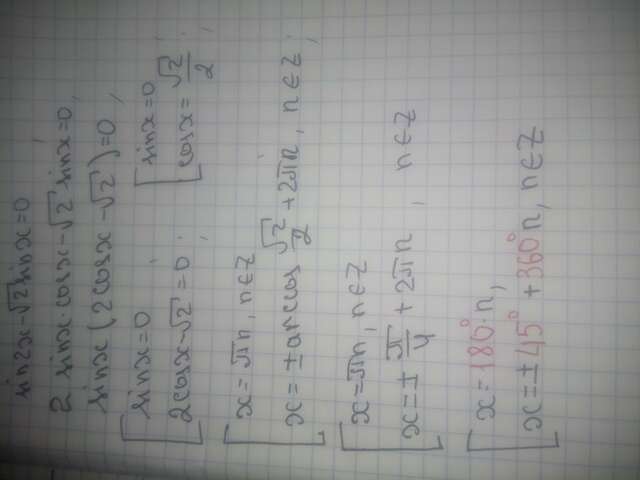 sin2x-√2 sinx=0
2 sinx·cosx-√2 sinx=0,
sinx(2cosx-√2)=0,
[sinx=0 [sinx=0
2cosx-√2=0; cosx=√2/2;
[x=πn, n∈Z
x=±arccos √2/2+2πn, n∈Z;
[x=πn, n∈Z
x=± π/4 + 2πn, n∈Z
[x=180°·n,
x=±45°+360°n, n∈Z